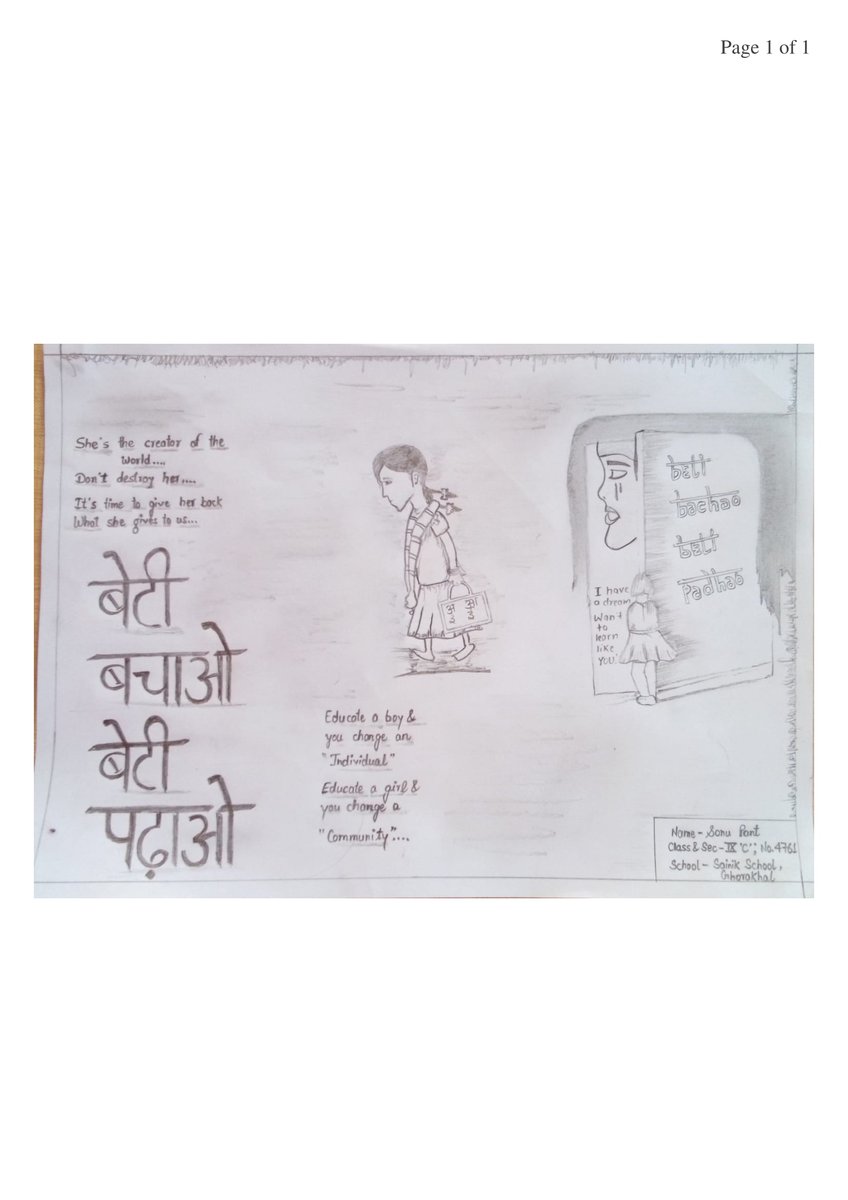 Page 1 of 1
She's the creator of the
world....
Don't destroy her....
It's time to give her back
What she gives to us...
बेटी
बचाओ
बेटी
पढ़ाओ
अ आ
इ ई
Educate a boy &
you change an
"Individual"
Educate a girl &
you change a
"Community"....
beti
bachao
beti
Padhao
I have
a dream
Want
to
learn
like
YOU.
Name - Sonu Pant
Class & Sec - IX 'C'; No. 4761
School - Sainik School,
Ghorakhal